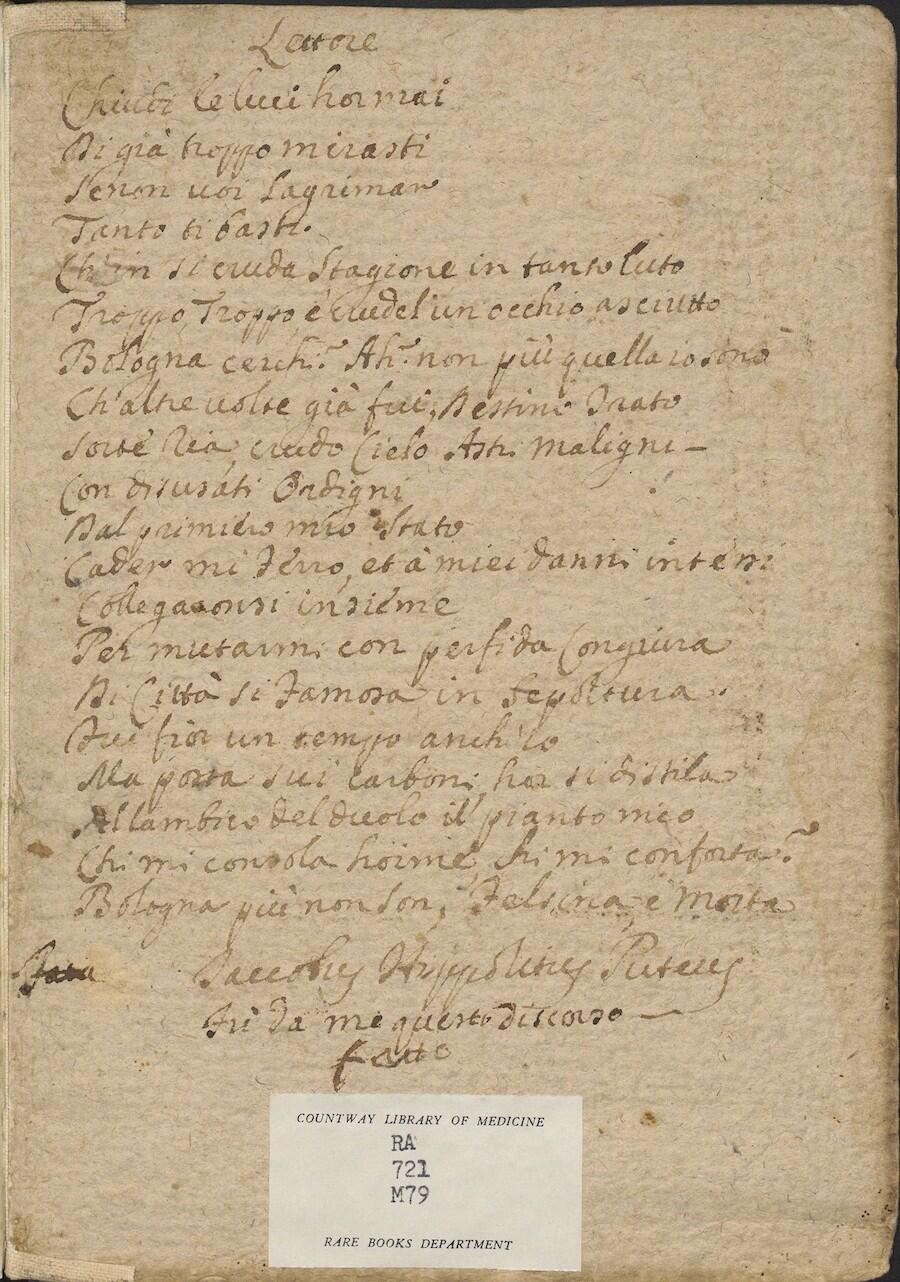 Lettore
Chiudi le luci hor mai
Di già troppo mirasti
Se non voi Lagrimare
Tanto ti basti.
Ch'in si cruda Stagione in tanto luto
Troppo, Troppo è crudel un occhio asciutto
Bologna cerchi? Ah? non più quella io sono
Ch'altre volte già fui, Destino Irato
Sorte Ria crudo Cielo Astri Maligni –
Con disusati Ordigni
Dal primiero mio Stato
Cader mi Ferno, et à miei danni intensi
Collegaronsi insiéme
Per mutarmi con perfida Congiura
Di Città si Famosa in Sepoltura.
Fui fior un tempo anch'io
Ma porta sui carboni hor si distila
Allambico del duolo il pianto mio
Chi mi consola hoime, chi mi conforta?
Bologna più non son, Felsina è Morta
Jaccobus Hyppolitus Puteus
Fù da me questo discorso –
fatto
COUNTWAY LIBRARY OF MEDICINE
RA
721
M79
RARE BOOKS DEPARTMENT